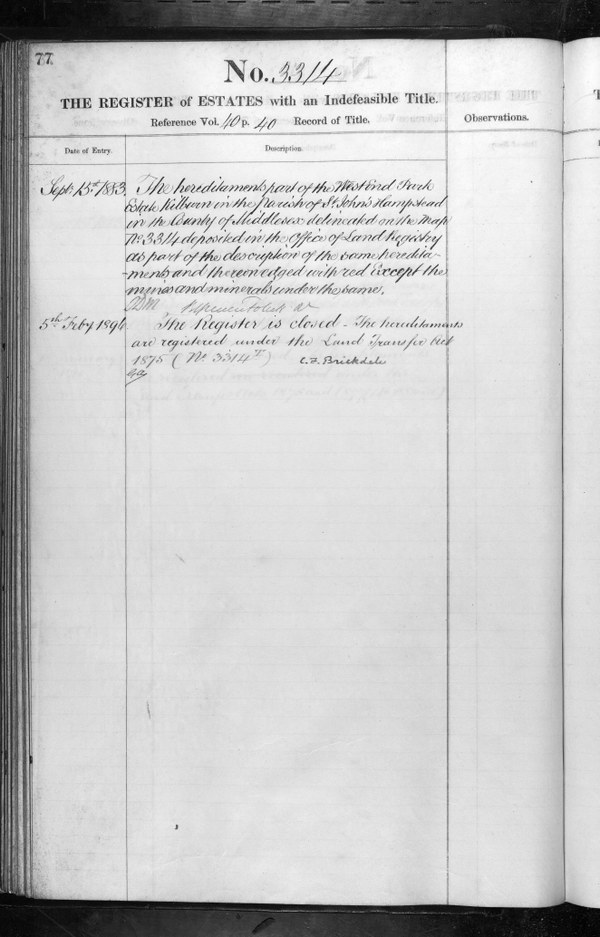 77
No. 3314
THE REGISTER of ESTATES with an Indefeasible Title.
Reference Vol. 40 p. 40 Record of Title.
Observations.
Date of Entry.
Description.
Septr. 15th 1883. The hereditaments part of the West End Park
Estate Kilburn in the Parish of St. John's Hampstead
in the County of Middlesex delineated on the Map
No. 3314 deposited in the Office of Land Registry
as part of the description of the same heredita-
-ments and thereon edged with red Except the
mines and minerals under the same.
5th Feby 1896. The Register is closed - The hereditaments
are registered under the Land Transfer Act
1875 (No 3314) C. F. Brickdale